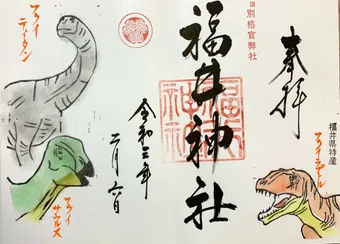 奉拝
福井県特産
フクイラプトル
旧別格官弊社
福井神社
福井神社
令和三年
二月六日
フクイ
ティタン
フクイ
サウルス